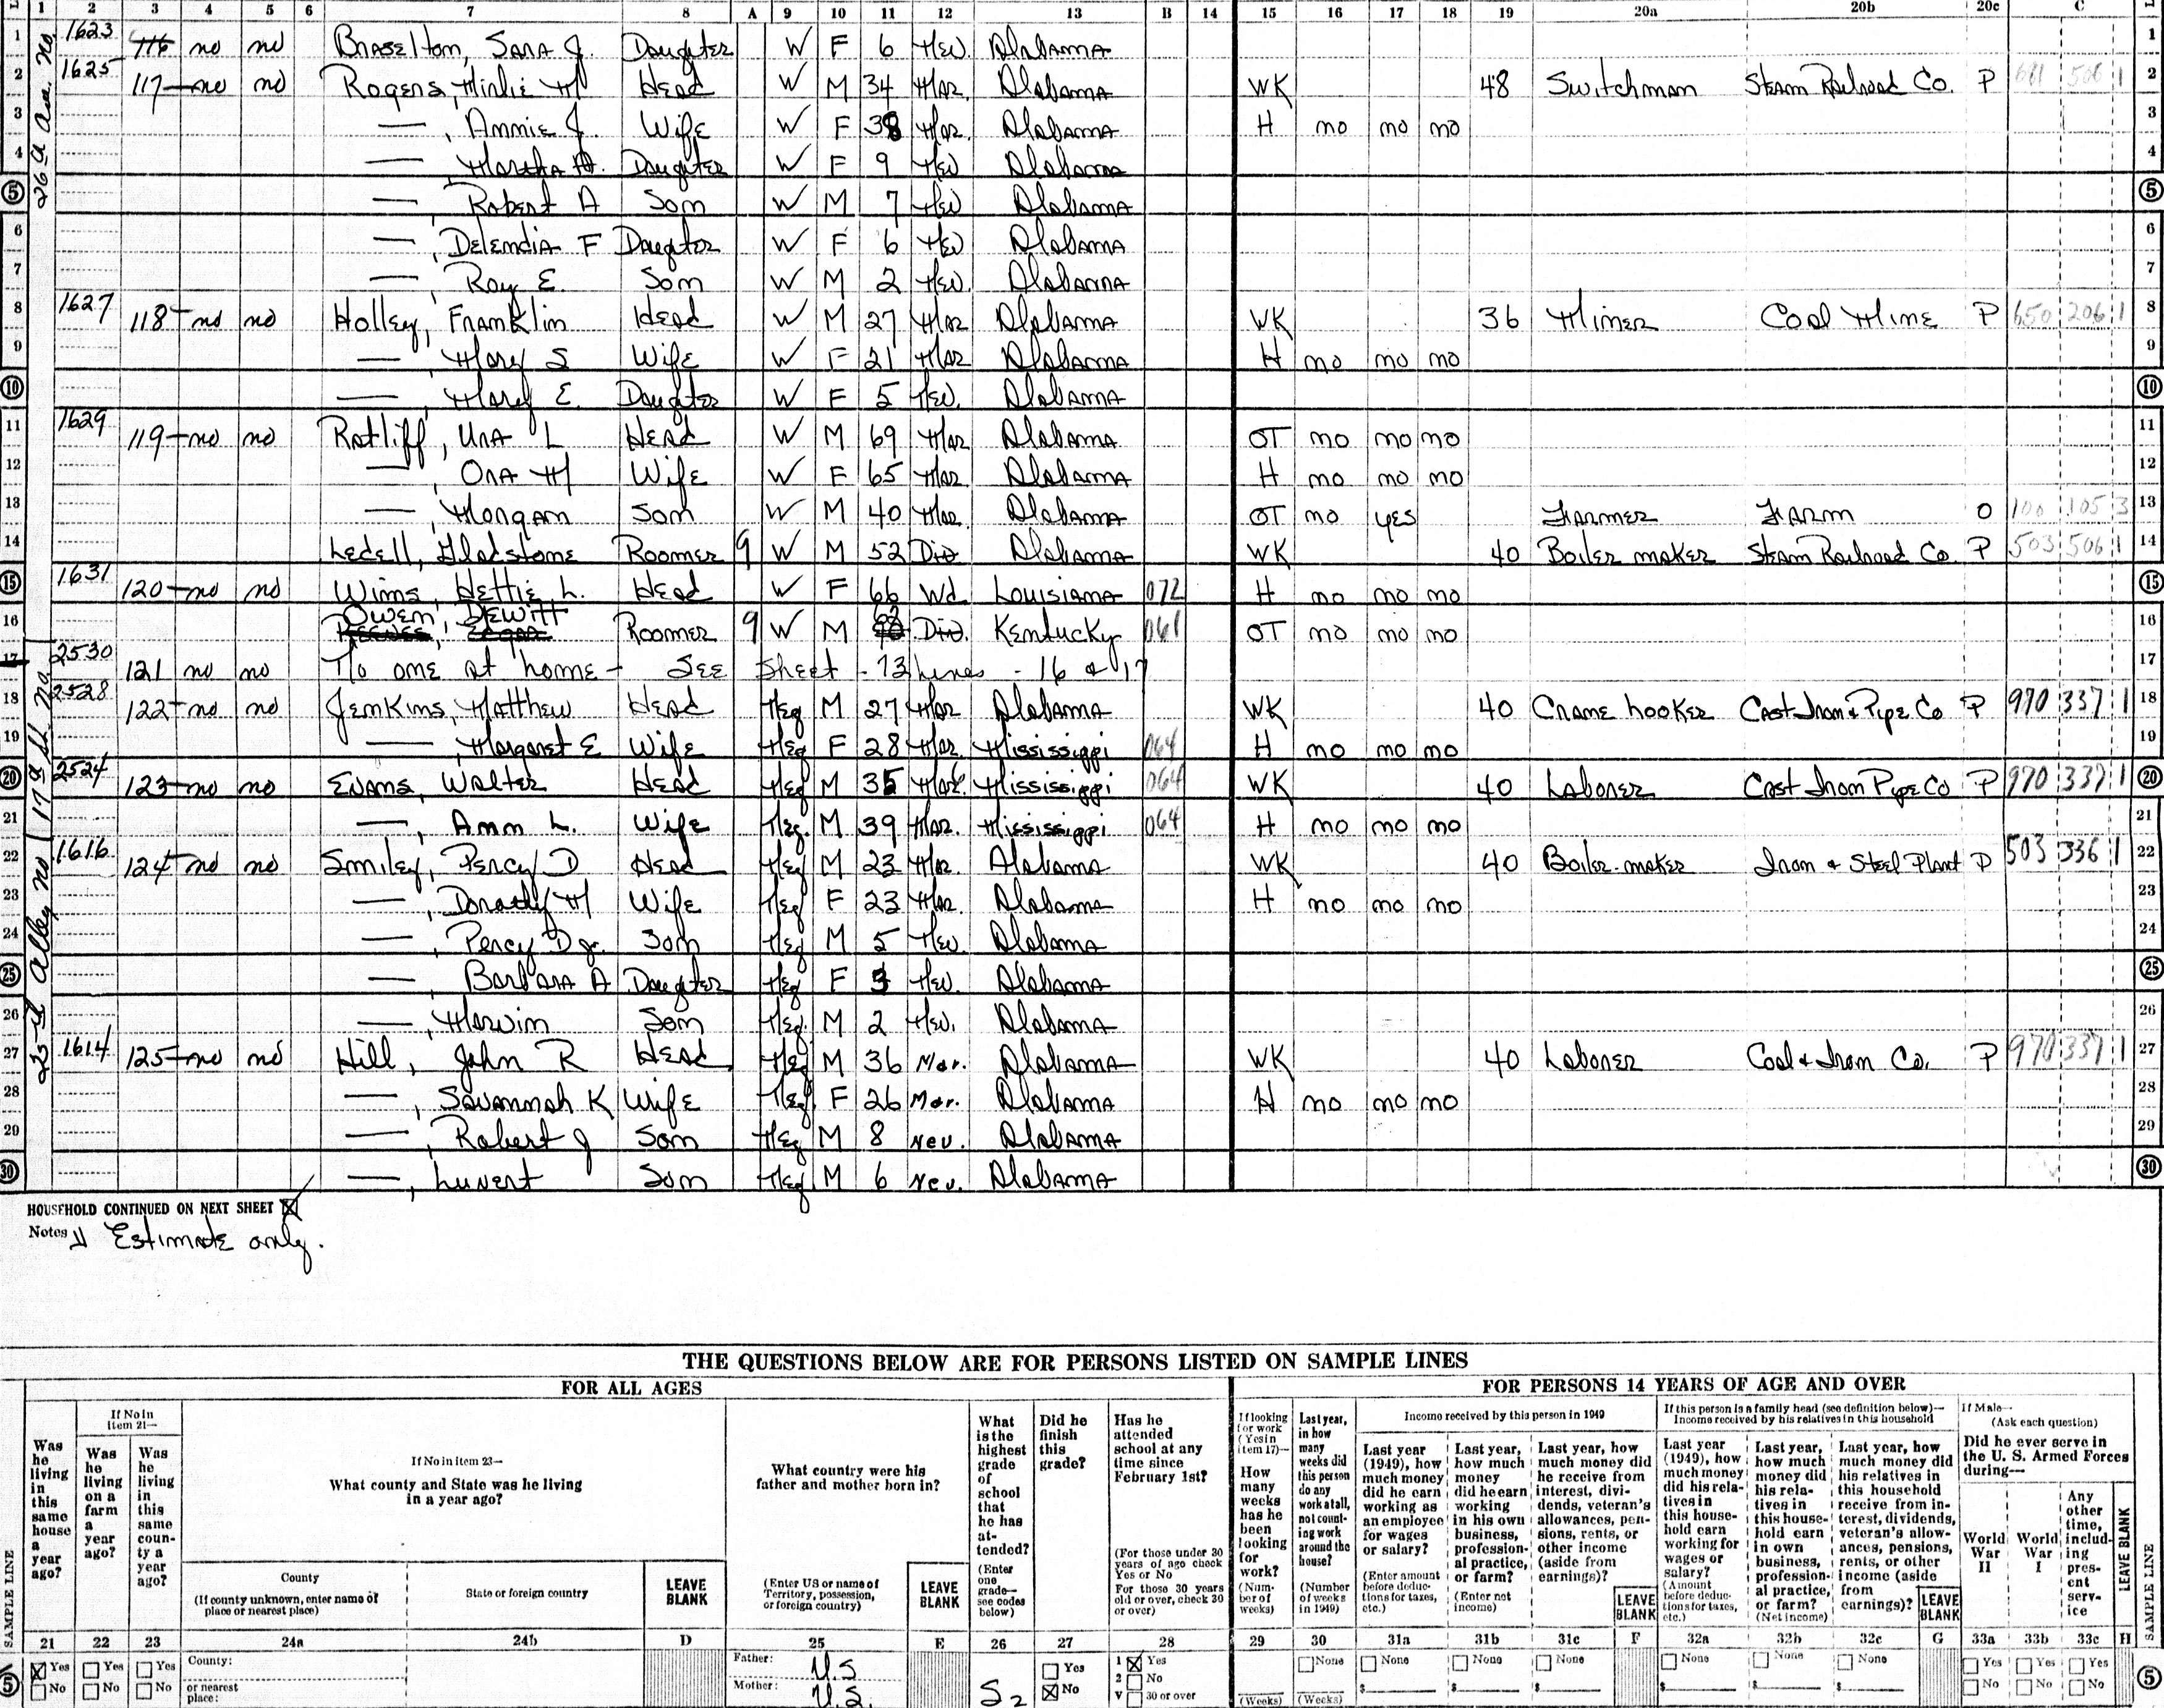 1 2 3 4 5 6 7 8 A 9 10 11 12 13 B 14 15 16 17 18 19 20a 20b 20c C
1 1623 116 no no Braselton, Sara J. Daughter W F 6 Nev. Alabama 1
2 1625 117 no no Rogers, M Head W M 34 Mar. Alabama WK 48 Switchman Steam Railroad Co. P 506 1 2
3 —, Annie J. Wife W F 38 Mar. Alabama H no no no 3
4 —, Martha A. Daughter W F 9 Nev Alabama 4
5 —, Robert A Son W M 7 Nev Alabama 5
6 —, Delendia F Daughter W F 6 Nev Alabama 6
7 —, Roy E. Son W M 2 Nev. Alabama 7
8 1627 118 no no Holley, Franklin Head W M 27 Mar Alabama WK 36 Miner Coal Mine P 650 206 1 8
9 —, Mary S Wife W F 21 Mar Alabama H no no no 9
10 —, Mary E. Daughter W F 5 Nev. Alabama 10
11 1629 119 no no Ratliff, Una L Head W M 69 Mar Alabama OT no no no 11
12 —, Ona M Wife W F 65 Mar Alabama H no no no 12
13 —, Morgan Son W M 40 Mar. Alabama OT no yes Farmer Farm O 100 105 3 13
14 Ledell, Gladstone Roomer 9 W M 52 Div Alabama WK 40 Boiler maker Steam Railroad Co. P 503 506 1 14
15 1631 120 no no Wims, Hettie L. Head W F 66 Wd Louisiana 072 H no no no 15
16 Owen, Dewitt Roomer 9 W M Div. Kentucky 061 OT no no no 16
17 2530 121 no no No one at home - See Sheet - 73 Lines - 16 & 17 17
18 2528 122 no no Jenkins, Matthew Head Neg M 27 Mar Alabama WK 40 Crane hooker Cast Iron & Pipe Co P 970 337 1 18
19 —, Margaret E Wife Neg F 28 Mar. Mississippi 064 H no no no 19
20 2524 123 no no Evans, Walter Head Neg M 35 Mar. Mississippi 064 WK 40 Laborer Cast Iron Pipe Co P 970 337 1 20
21 —, Ann L. Wife Neg. M 39 Mar. Mississippi 064 H no no no 21
22 1616 124 no no Smiley, Percy D Head Neg M 23 Mar. Alabama WK 40 Boiler-maker Iron & Steel Plant P 503 336 1 22
23 —, Dorothy M Wife Neg F 23 Mar. Alabama H no no no 23
24 —, Percy D Jr. Son Neg M 5 Nev. Alabama 24
25 —, Barbara A Daughter Neg F 3 Nev. Alabama 25
26 —, Marvin Son Neg. M 2 Nev. Alabama 26
27 1614 125 no no Hill, John R Head Neg M 36 Mar. Alabama WK 40 Laborer Coal & Iron Co. P 970 337 1 27
28 —, Savannah K Wife Neg. F 26 Mar. Alabama H no no no 28
29 —, Robert J Son Neg M 8 Nev. Alabama 29
30 —, Luvert Son Neg M 6 Nev. Alabama 30
26th Ave. No.
17th St. No.
25th Alley no
HOUSEHOLD CONTINUED ON NEXT SHEET
Notes Estimate only.
THE QUESTIONS BELOW ARE FOR PERSONS LISTED ON SAMPLE LINES
FOR ALL AGES
FOR PERSONS 14 YEARS OF AGE AND OVER
SAMPLE LINE
Was he living in this same house a year ago?
If No in item 21—
Was he living on a farm a year ago?
Was he living in this same county a year ago?
If No in item 23—
What county and State was he living in a year ago?
County
(If county unknown, enter name of place or nearest place)
State or foreign country
LEAVE BLANK
What country were his father and mother born in?
(Enter US or name of Territory, possession, or foreign country)
LEAVE BLANK
What is the highest grade of school that he has attended?
(Enter one grade—see codes below)
Did he finish this grade?
Has he attended school at any time since February 1st?
(For those under 30 years of age check Yes or No
For those 30 years old or over, check 30 or over)
If looking for work (Yes in item 17)—
How many weeks has he been looking for work?
(Number of weeks)
Last year, in how many weeks did this person do any work at all, not counting work around the house?
(Number of weeks in 1949)
Income received by this person in 1949
Last year (1949), how much money did he earn working as an employee for wages or salary?
(Enter amount before deductions for taxes, etc.)
Last year, how much money did he earn working in his own business, professional practice, or farm?
(Enter net income)
Last year, how much money did he receive from interest, dividends, veteran's allowances, pensions, rents, or other income (aside from earnings)?
LEAVE BLANK
If this person is a family head (see definition below)—
Income received by his relatives in this household
Last year (1949), how much money did his relatives in this household earn working for wages or salary?
(Amount before deductions for taxes, etc.)
Last year, how much money did his relatives in this household earn in own business, professional practice, or farm?
(Net income)
Last year, how much money did his relatives in this household receive from interest, dividends, veteran's allowances, pensions, rents, or other income (aside from earnings)?
LEAVE BLANK
If Male—
(Ask each question)
Did he ever serve in the U. S. Armed Forces during—
World War II
World War I
Any other time, including present service
LEAVE BLANK
SAMPLE LINE
21 22 23 24a 24b D 25 E 26 27 28 29 30 31a 31b 31c F 32a 32b 32c G 33a 33b 33c H
5 Yes Yes Yes County: Father: U.S. Yes 1 Yes None None None None None None None Yes Yes Yes 5
No No No or nearest place: Mother: U.S. S2 No 2 No $ $ $ $ $ $ No No No
V 30 or over (Weeks) (Weeks)